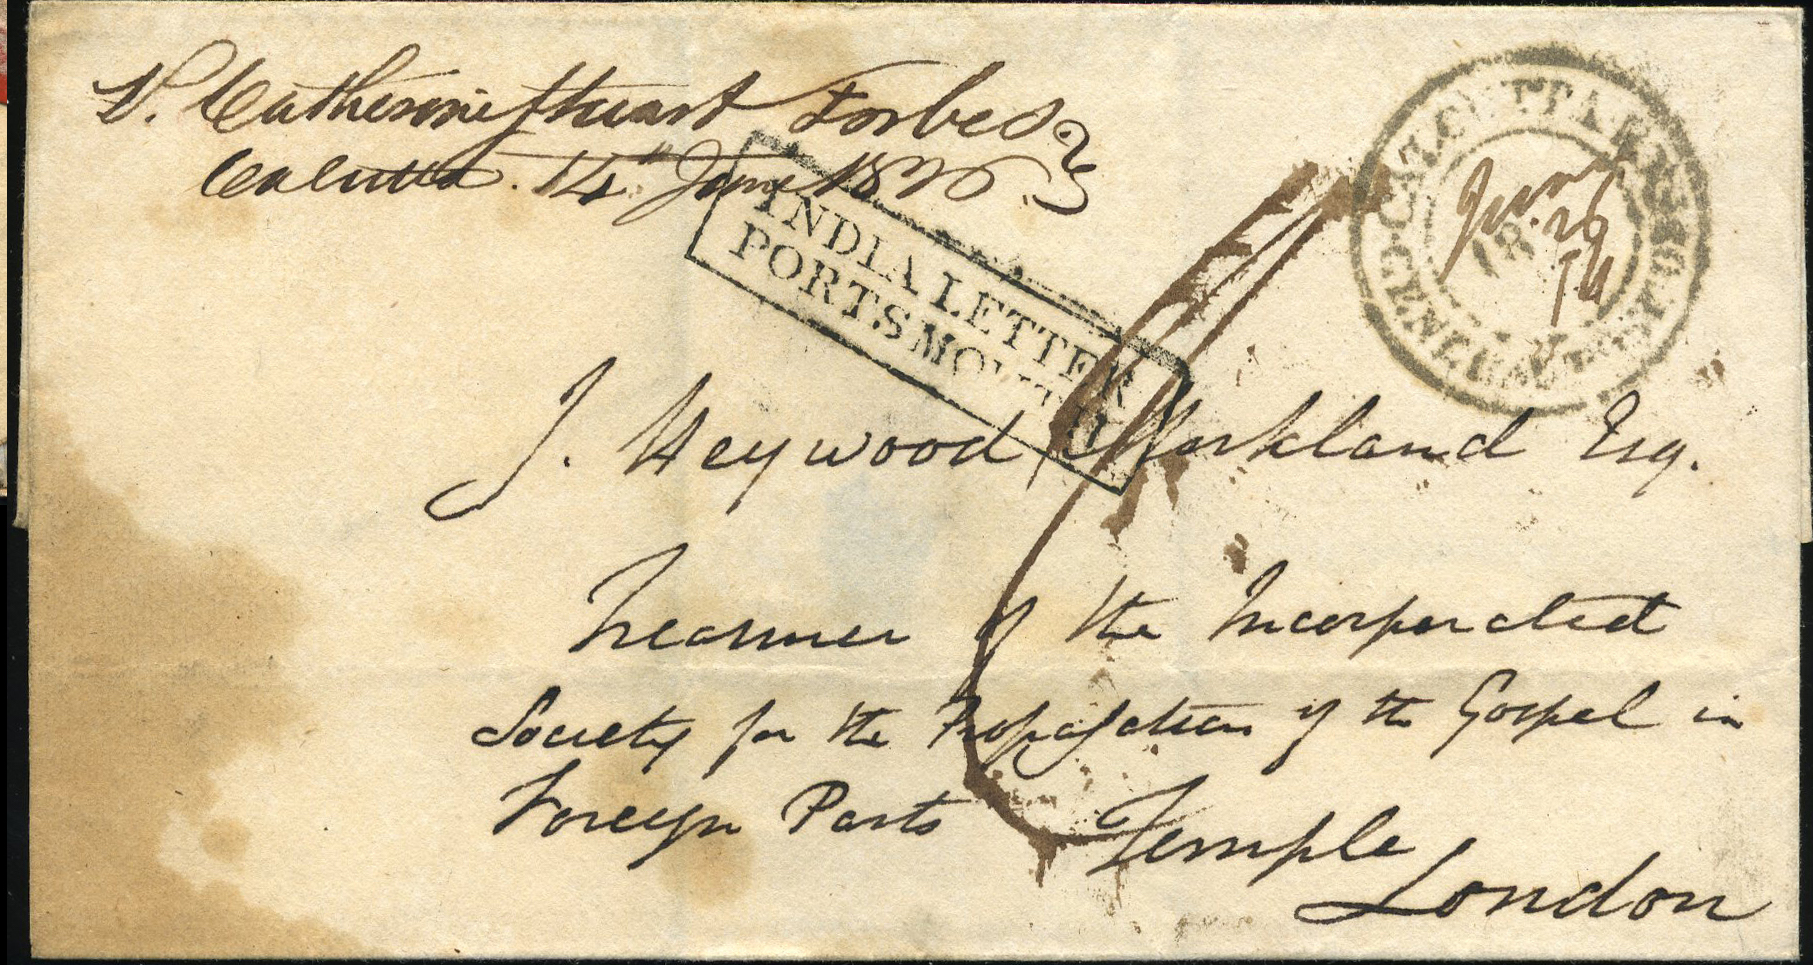 P. Catherine Stuart Forbes
Calcutta. 14" June 1826
INDIA LETTER
PORTSMOUTH
CALCUTTA
June
26
18
J. Heywood Markland Esq.
Treasurer of the Incorporated
Society for the Propagation of the Gospel in
Foreign Parts Temple
London